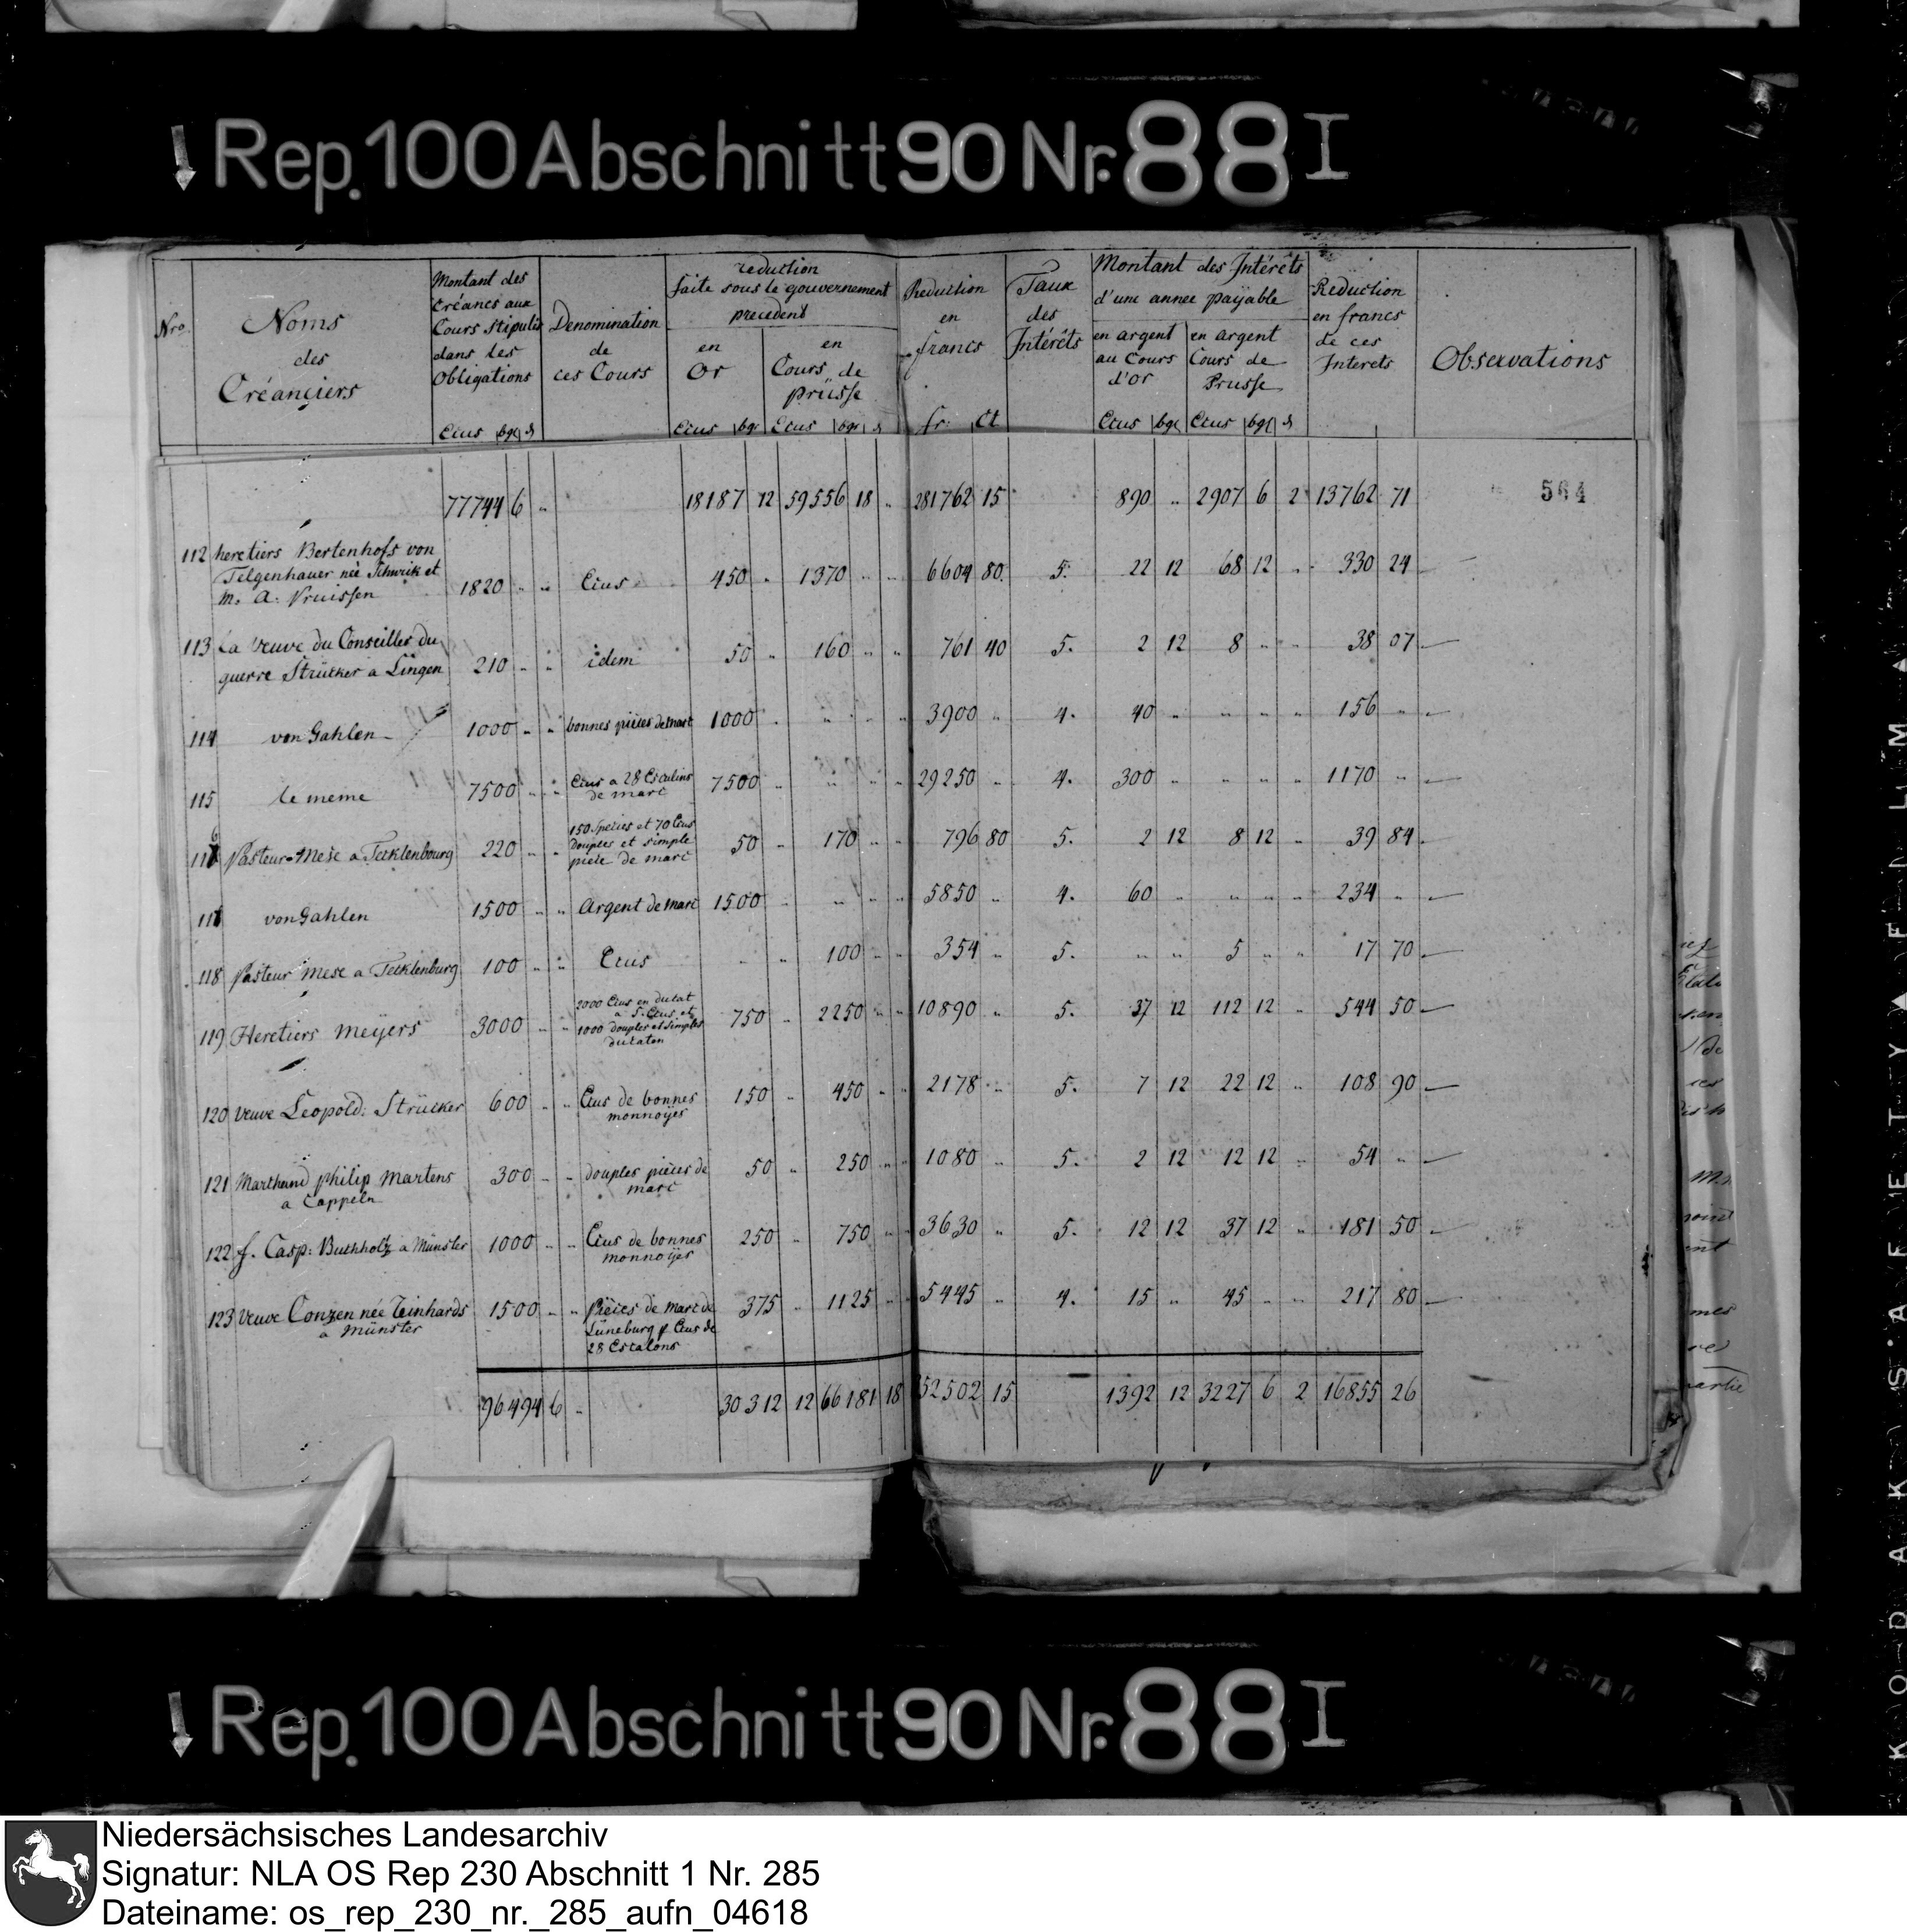 Rep. 100 Abschnitt 90 Nr. 88 I
Nro. | Noms des Créanciers | Montant des Créances aux Cours stipulés dans les Obligations Ecus bgl d | Denomination de ces Cours | reduction faite sous le gouvernement precedent: en Or Ecus bgr | en Cours de prüsse Ecus bgr d | Reduction en francs fr. Ct | Taux des Intérêts | Montant des Intérêts d'une annee payable: en argent au Cours d'or Ecus bgl | en argent Cours de Prusse Ecus bgl d | Reduction en francs de ces Interets | Observations
77744 6 .. | 18187 12 | 59556 18 .. | 281762 15 | 890 .. | 2907 6 2 | 13762 71 | 564
112 heretiers Bertenhofs von
Telgenhauer née Schwick et
M. A. Pruissen | 1820 .. .. | Ecus | 450 .. | 1370 .. .. | 6604 80 | 5. | 22 12 | 68 12 .. | 330 24 —
113 La Veuve du Conseilles du
guerre Strücker a Lingen | 210 .. .. | idem | 50 .. | 160 .. .. | 761 40 | 5. | 2 12 | 8 .. .. | 38 07 —
114 von Gahlen | 1000 .. .. | bonnes pièces de marc | 1000 .. | .. .. .. | 3900 .. | 4. | 40 .. | .. .. .. | 156 .. —
115 le meme | 7500 .. .. | Ecus a 28 Escalins
de marc | 7500 .. | .. .. .. | 29250 .. | 4. | 300 .. | .. .. .. | 1170 .. —
116 Pasteur Mese a Tecklenbourg | 220 .. .. | 150 Species et 70 Ecus
douples et simple
piece de marc | 50 .. | 170 .. .. | 796 80 | 5. | 2 12 | 8 12 .. | 39 84
117 von Gahlen | 1500 .. .. | Argent de marc | 1500 .. | .. .. .. | 5850 .. | 4. | 60 .. | .. .. .. | 234 .. —
118 Pasteur Mese a Tecklenburg | 100 .. .. | Ecus | .. .. | 100 .. .. | 354 .. | 5. | .. .. | 5 .. .. | 17 70 —
119 Heretiers Meyers | 3000 .. .. | 2000 Ecus en ducat
a 5 Ecus et
1000 douples et simples
ducaton | 750 .. | 2250 .. .. | 10890 .. | 5. | 37 12 | 112 12 .. | 544 50 —
120 Veuve Leopold: Strücker | 600 .. .. | Ecus de bonnes
monnoÿes | 150 .. | 450 .. .. | 2178 .. | 5. | 7 12 | 22 12 .. | 108 90 —
121 Marchand philip Martens
a Cappeln | 300 .. .. | douples pièces de
marc | 50 .. | 250 .. .. | 1080 .. | 5. | 2 12 | 12 12 .. | 54 .. —
122 f. Casp: Buchholtz a Münster | 1000 .. .. | Ecus de bonnes
monnoÿes | 250 .. | 750 .. .. | 3630 .. | 5. | 12 12 | 37 12 .. | 181 50 —
123 Veuve Conzen née Teinhards
a Münster | 1500 .. .. | Pièces de marc de
Lüneburg p Ecus de
28 Escalons | 375 .. | 1125 .. .. | 5445 .. | 4. | 15 .. | 45 .. .. | 217 80 —
96494 6 .. | 30312 12 | 66181 18 | 352502 15 | 1392 12 | 3227 6 2 | 16855 26
Rep. 100 Abschnitt 90 Nr. 88 I
Niedersächsisches Landesarchiv
Signatur: NLA OS Rep 230 Abschnitt 1 Nr. 285
Dateiname: os_rep_230_nr._285_aufn_04618